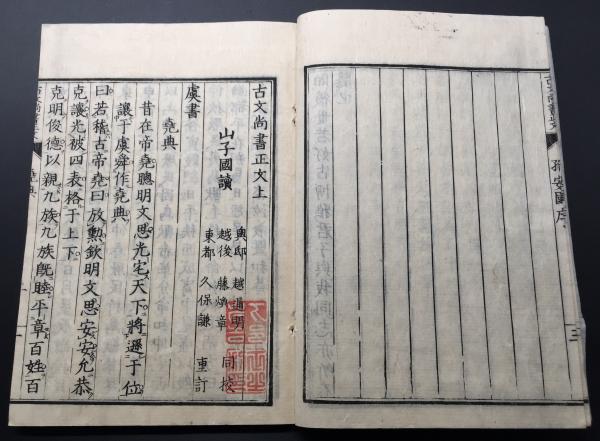 古文尚書正文
孔安國序
三
古文尚書正文上
山子國讀
奧邸 越通明
越後 藤煥章 同校
東都 久保謙 重訂
虞書
堯典
昔在帝堯聰明文思光宅天下將遜于位
讓于虞舜作堯典
曰若稽古帝堯曰放勲欽明文思安安允恭
克讓光被四表格于上下
克明俊德以親九族九族既睦平章百姓百
堯典
一